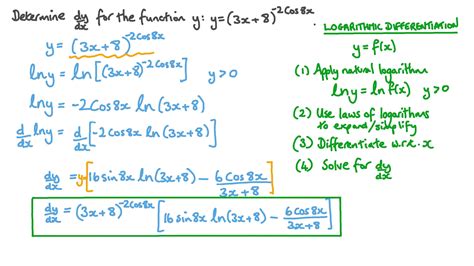 Determine dy/dx for the function y: y=(3x+8)^-2Cos8x.
y = (3x+8)^-2Cos8x
ln y = ln[(3x+8)^-2Cos8x]   y>0
ln y = -2Cos8x ln(3x+8)
d/dx ln y = d/dx[-2Cos8x ln(3x+8)]
dy/dx = y[16 sin8x ln(3x+8) - 6Cos8x/3x+8]
dy/dx = (3x+8)^-2Cos8x [16 sin8x ln(3x+8) - 6Cos8x/3x+8]
LOGARITHMIC DIFFERENTIATION
y = f(x)
(1) Apply natural logarithm
ln y = ln f(x)   y>0
(2) Use laws of logarithms
to expand/simplify
(3) Differentiate w.r.t. x
(4) Solve for dy/dx